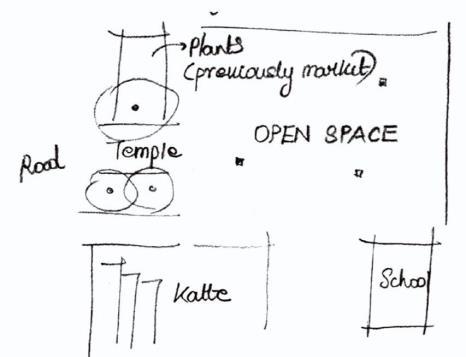 Plants
(previously market)
OPEN SPACE
Temple
Road
Katte
School